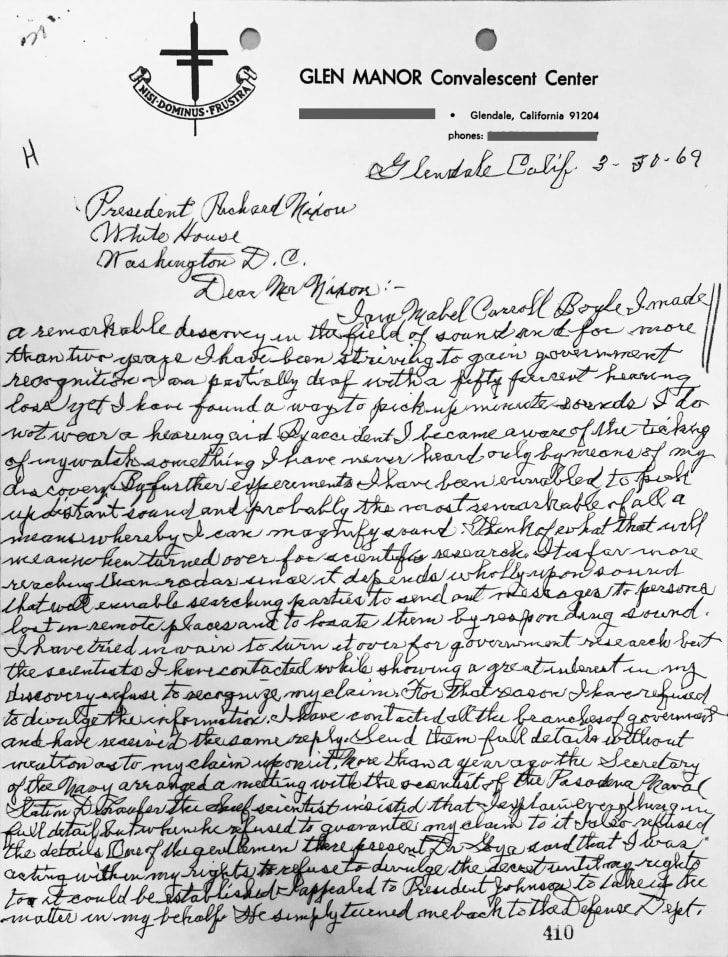 NISI·DOMINUS·FRUSTRA
GLEN MANOR Convalescent Center
• Glendale, California 91204
phones:
H
Glendale Calif. 3-30-69
President Richard Nixon
White House
Washington D.C.
Dear Mr Nixon:-
I am Mabel Carroll Boyle, I made
a remarkable discovey in the field of sound and for more
than two years I have been striving to gain government
recognition I am partially deaf with a fifty percent hearing
loss yet I have found a way to pick up minute sounds I do
not wear a hearing aid By accident I became aware of the ticking
of my watch something I have never heard only by means of my
discovery. By further experiments I have been ennabled to pick
up distant sound and probably the most remarkable of all a
means whereby I can magnify sound. Think of what that will
mean when turned over for scientific research. It is far more
reaching than radar since it depends wholly upon sound
that will ennable searching parties to send out messages to persons
lost in remote places and to locate them by responding sound.
I have tried in vain to turn it over for government research but
the scientists I have contacted while showing a great interest in my
discovery refuse to recognize my claim. For that reason I have refused
to divulge the information. I have contacted all the branches of government
and have received the same reply. Send them full details without
mention as to my claim upon it. More than a year ago the Secretary
of the Navy arranged a meeting with the scientist of the Pasadena Naval
Station the chief scientist insisted that I explain everything in
full detail but when he refused to guarantee my claim to it I also refused
the details One of the gentlemen there present Dr said that I was
acting within my rights to refuse to divulge the secret until my rights
to it could be established I appealed to President Johnson to take up the
matter in my behalf. He simply turned me back to the Defense Dept.
410